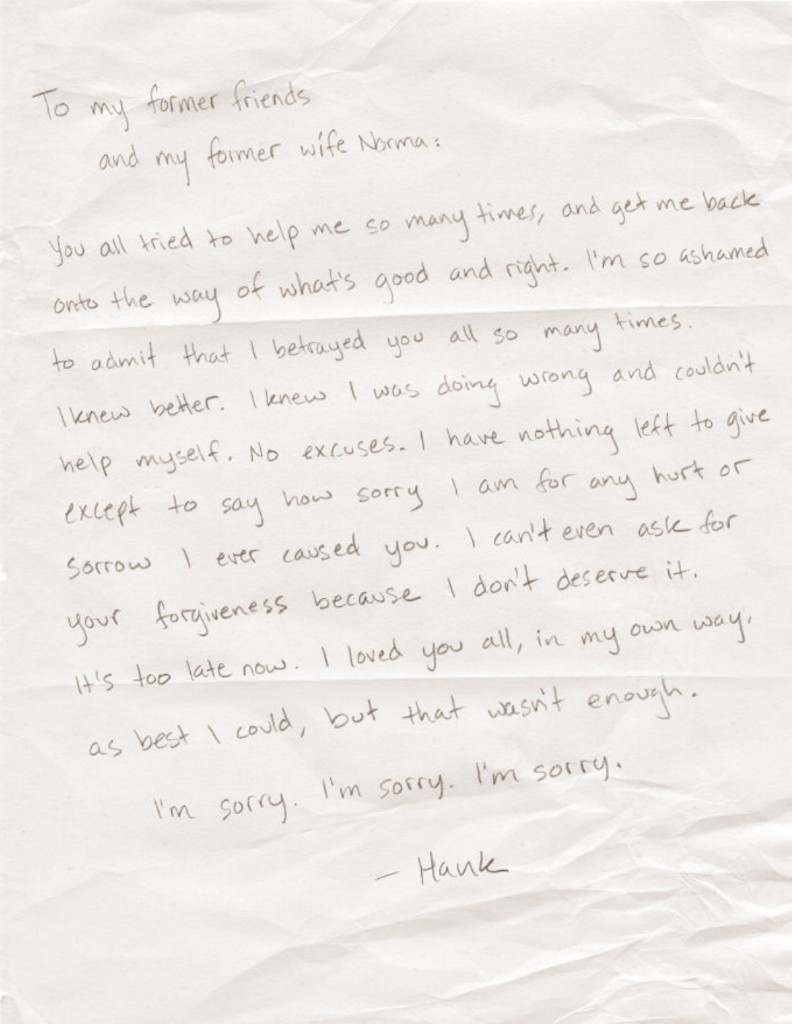 To my former friends
and my former wife Norma:
You all tried to help me so many times, and get me back
onto the way of what's good and right. I'm so ashamed
to admit that I betrayed you all so many times.
I knew better. I knew I was doing wrong and couldn't
help myself. No excuses. I have nothing left to give
except to say how sorry I am for any hurt or
sorrow I ever caused you. I can't even ask for
your forgiveness because I don't deserve it.
It's too late now. I loved you all, in my own way,
as best I could, but that wasn't enough.
I'm sorry. I'm sorry. I'm sorry.
— Hank